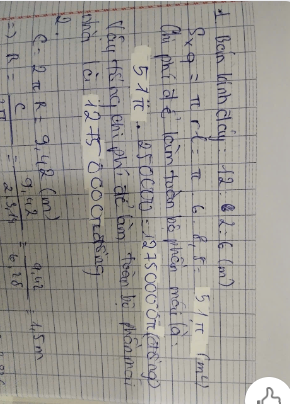 1 Bán kính đáy: 12 : 2 = 6 (m)
Sxq = π r l = π . 6 . 8,5 = 51π (m²)
Chi phí để làm toàn bộ phần mái là:
51π . 250000 = 12750000π (đồng)
Vậy tổng chi phí để làm toàn bộ phần mái
nhà là 12750000π đồng
2.
C = 2πR = 9,42 (m)
=> R = C / 2π = 9,42 / 2.3,14 = 9,42 / 6,28 = 1,5m